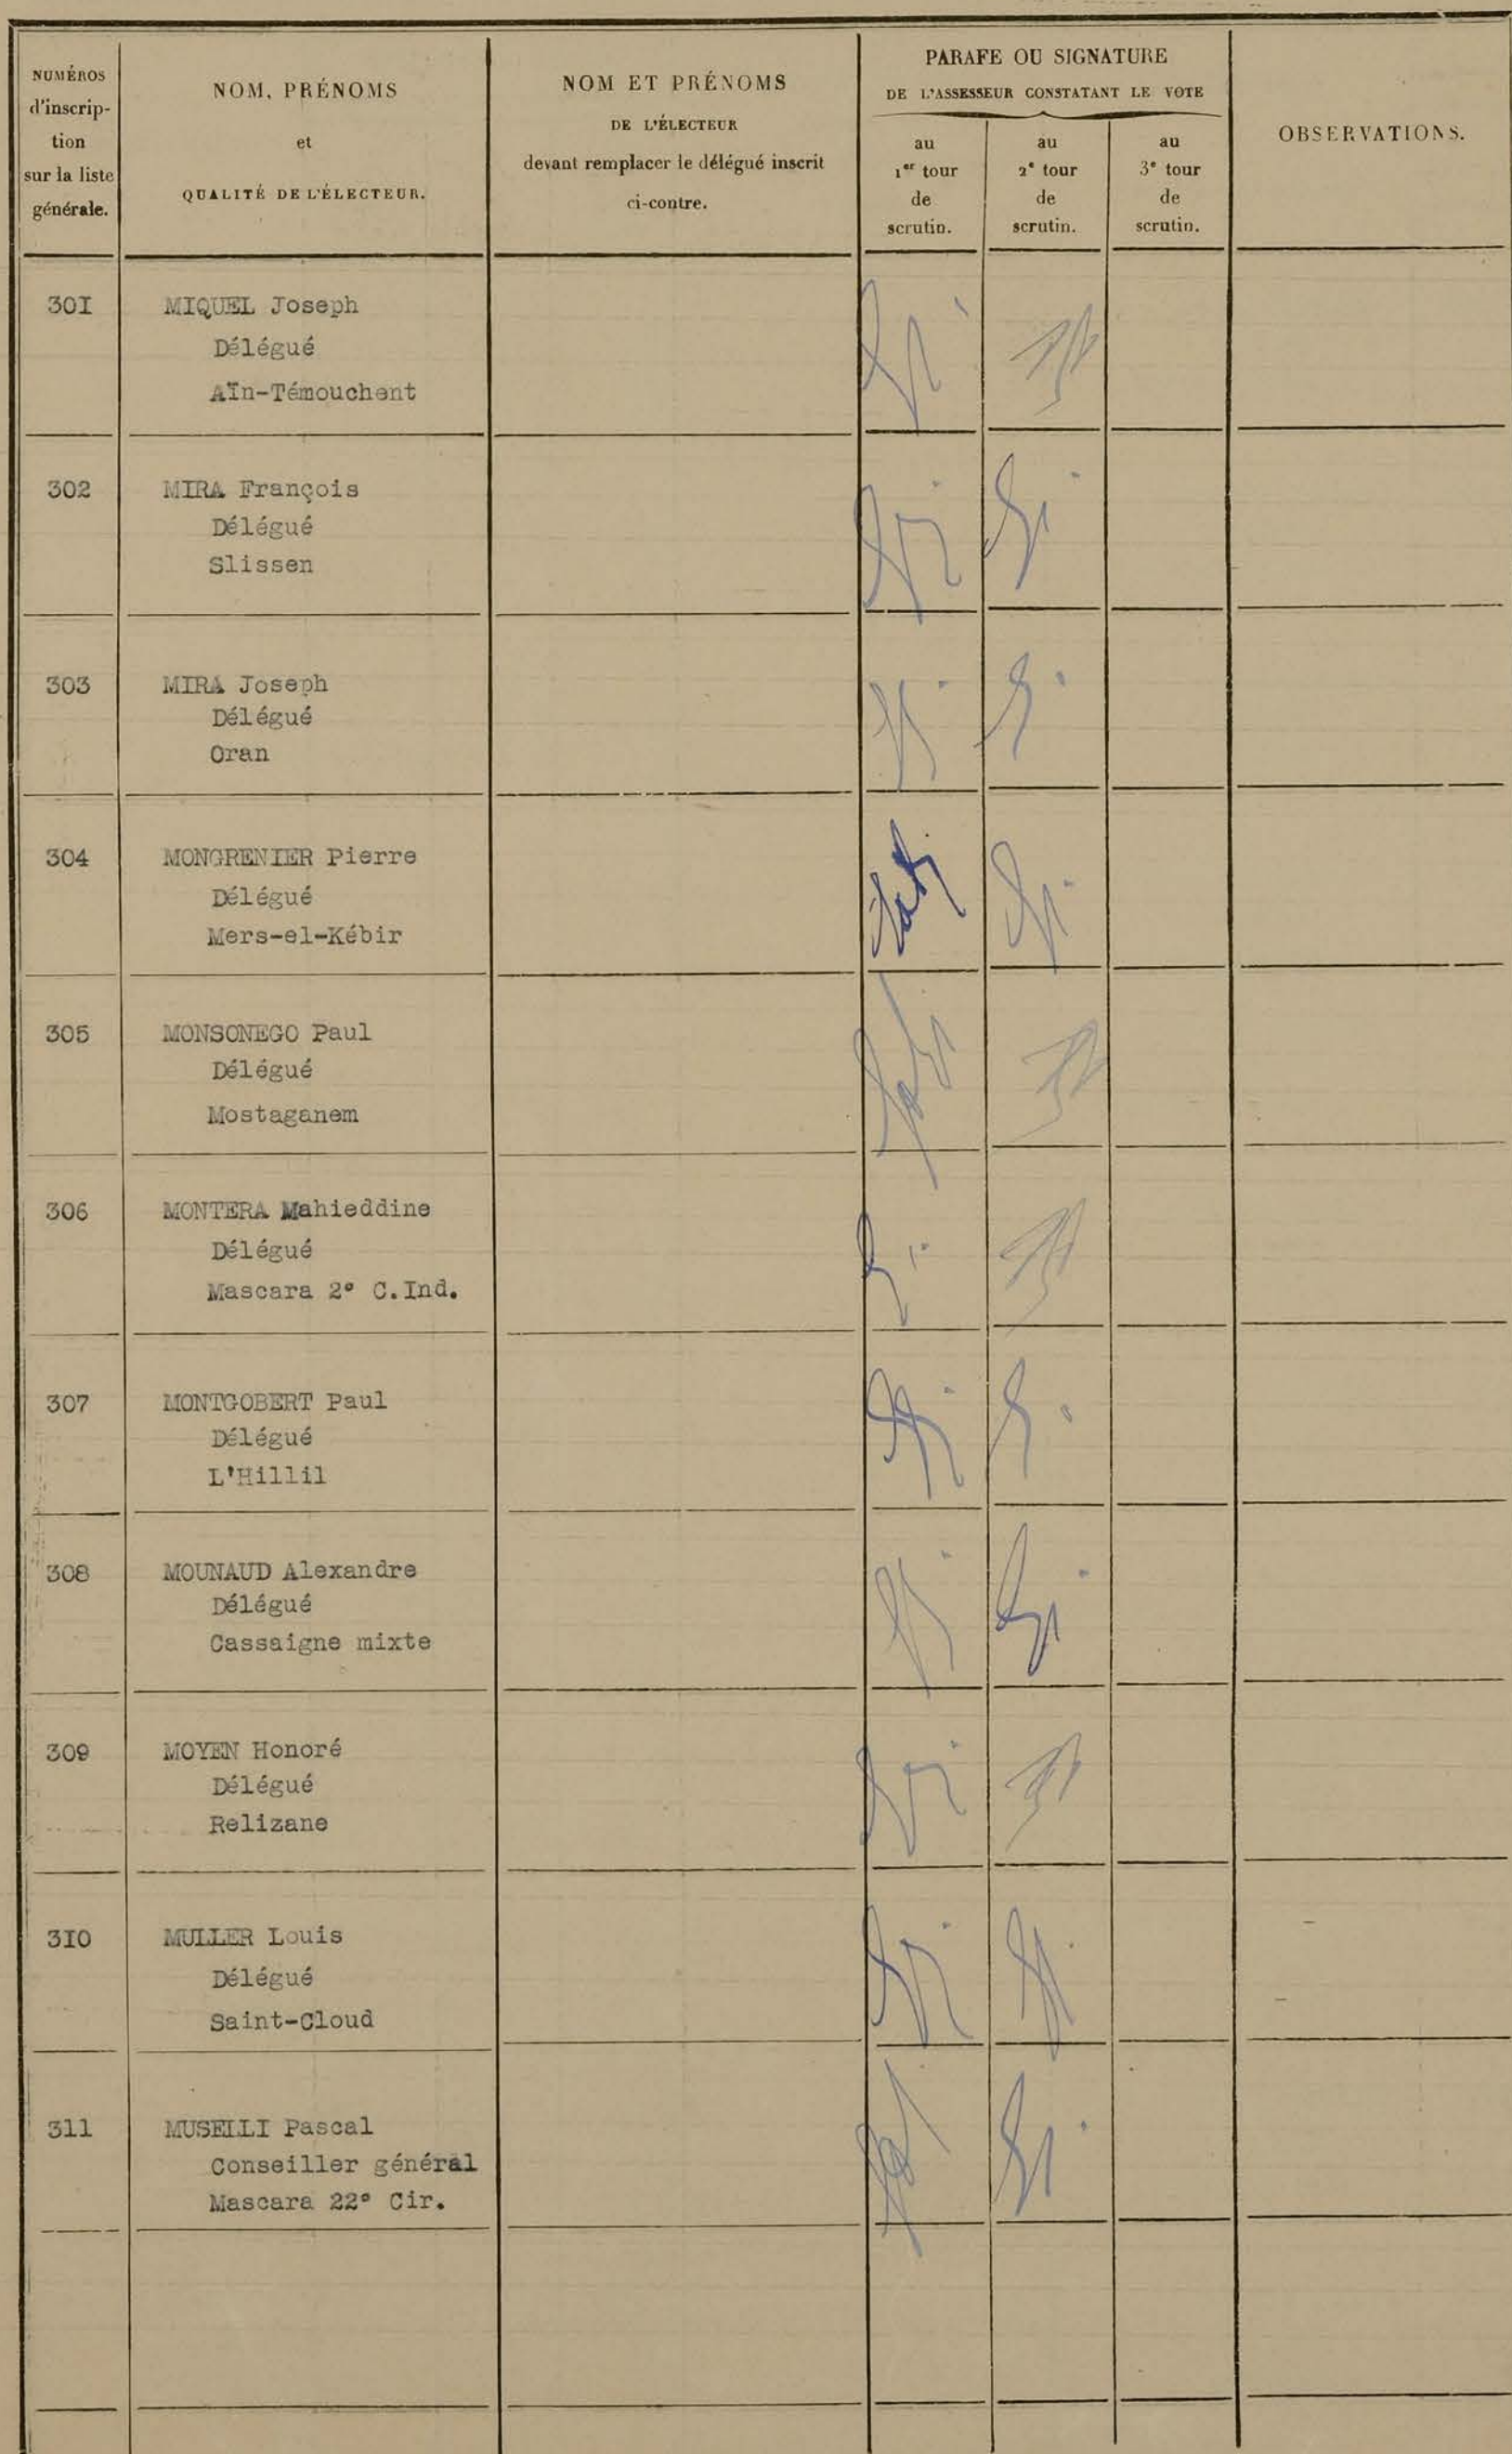 NUMÉROS
d'inscrip-
tion
sur la liste
générale.
NOM, PRÉNOMS
et
QUALITÉ DE L'ÉLECTEUR.
NOM ET PRÉNOMS
DE L'ÉLECTEUR
devant remplacer le délégué inscrit
ci-contre.
PARAFE OU SIGNATURE
DE L'ASSESSEUR CONSTATANT LE VOTE
au
1er tour
de
scrutin.
au
2e tour
de
scrutin.
au
3e tour
de
scrutin.
OBSERVATIONS.
30I MIQUEL Joseph
Délégué
Aïn-Témouchent
302 MIRA François
Délégué
Slissen
303 MIRA Joseph
Délégué
Oran
304 MONGRENIER Pierre
Délégué
Mers-el-Kébir
305 MONSONEGO Paul
Délégué
Mostaganem
306 MONTERA Mahieddine
Délégué
Mascara 2° C.Ind.
307 MONTGOBERT Paul
Délégué
L'Hillil
308 MOUNAUD Alexandre
Délégué
Cassaigne mixte
309 MOYEN Honoré
Délégué
Relizane
3I0 MULLER Louis
Délégué
Saint-Cloud
311 MUSELLI Pascal
Conseiller général
Mascara 22° Cir.